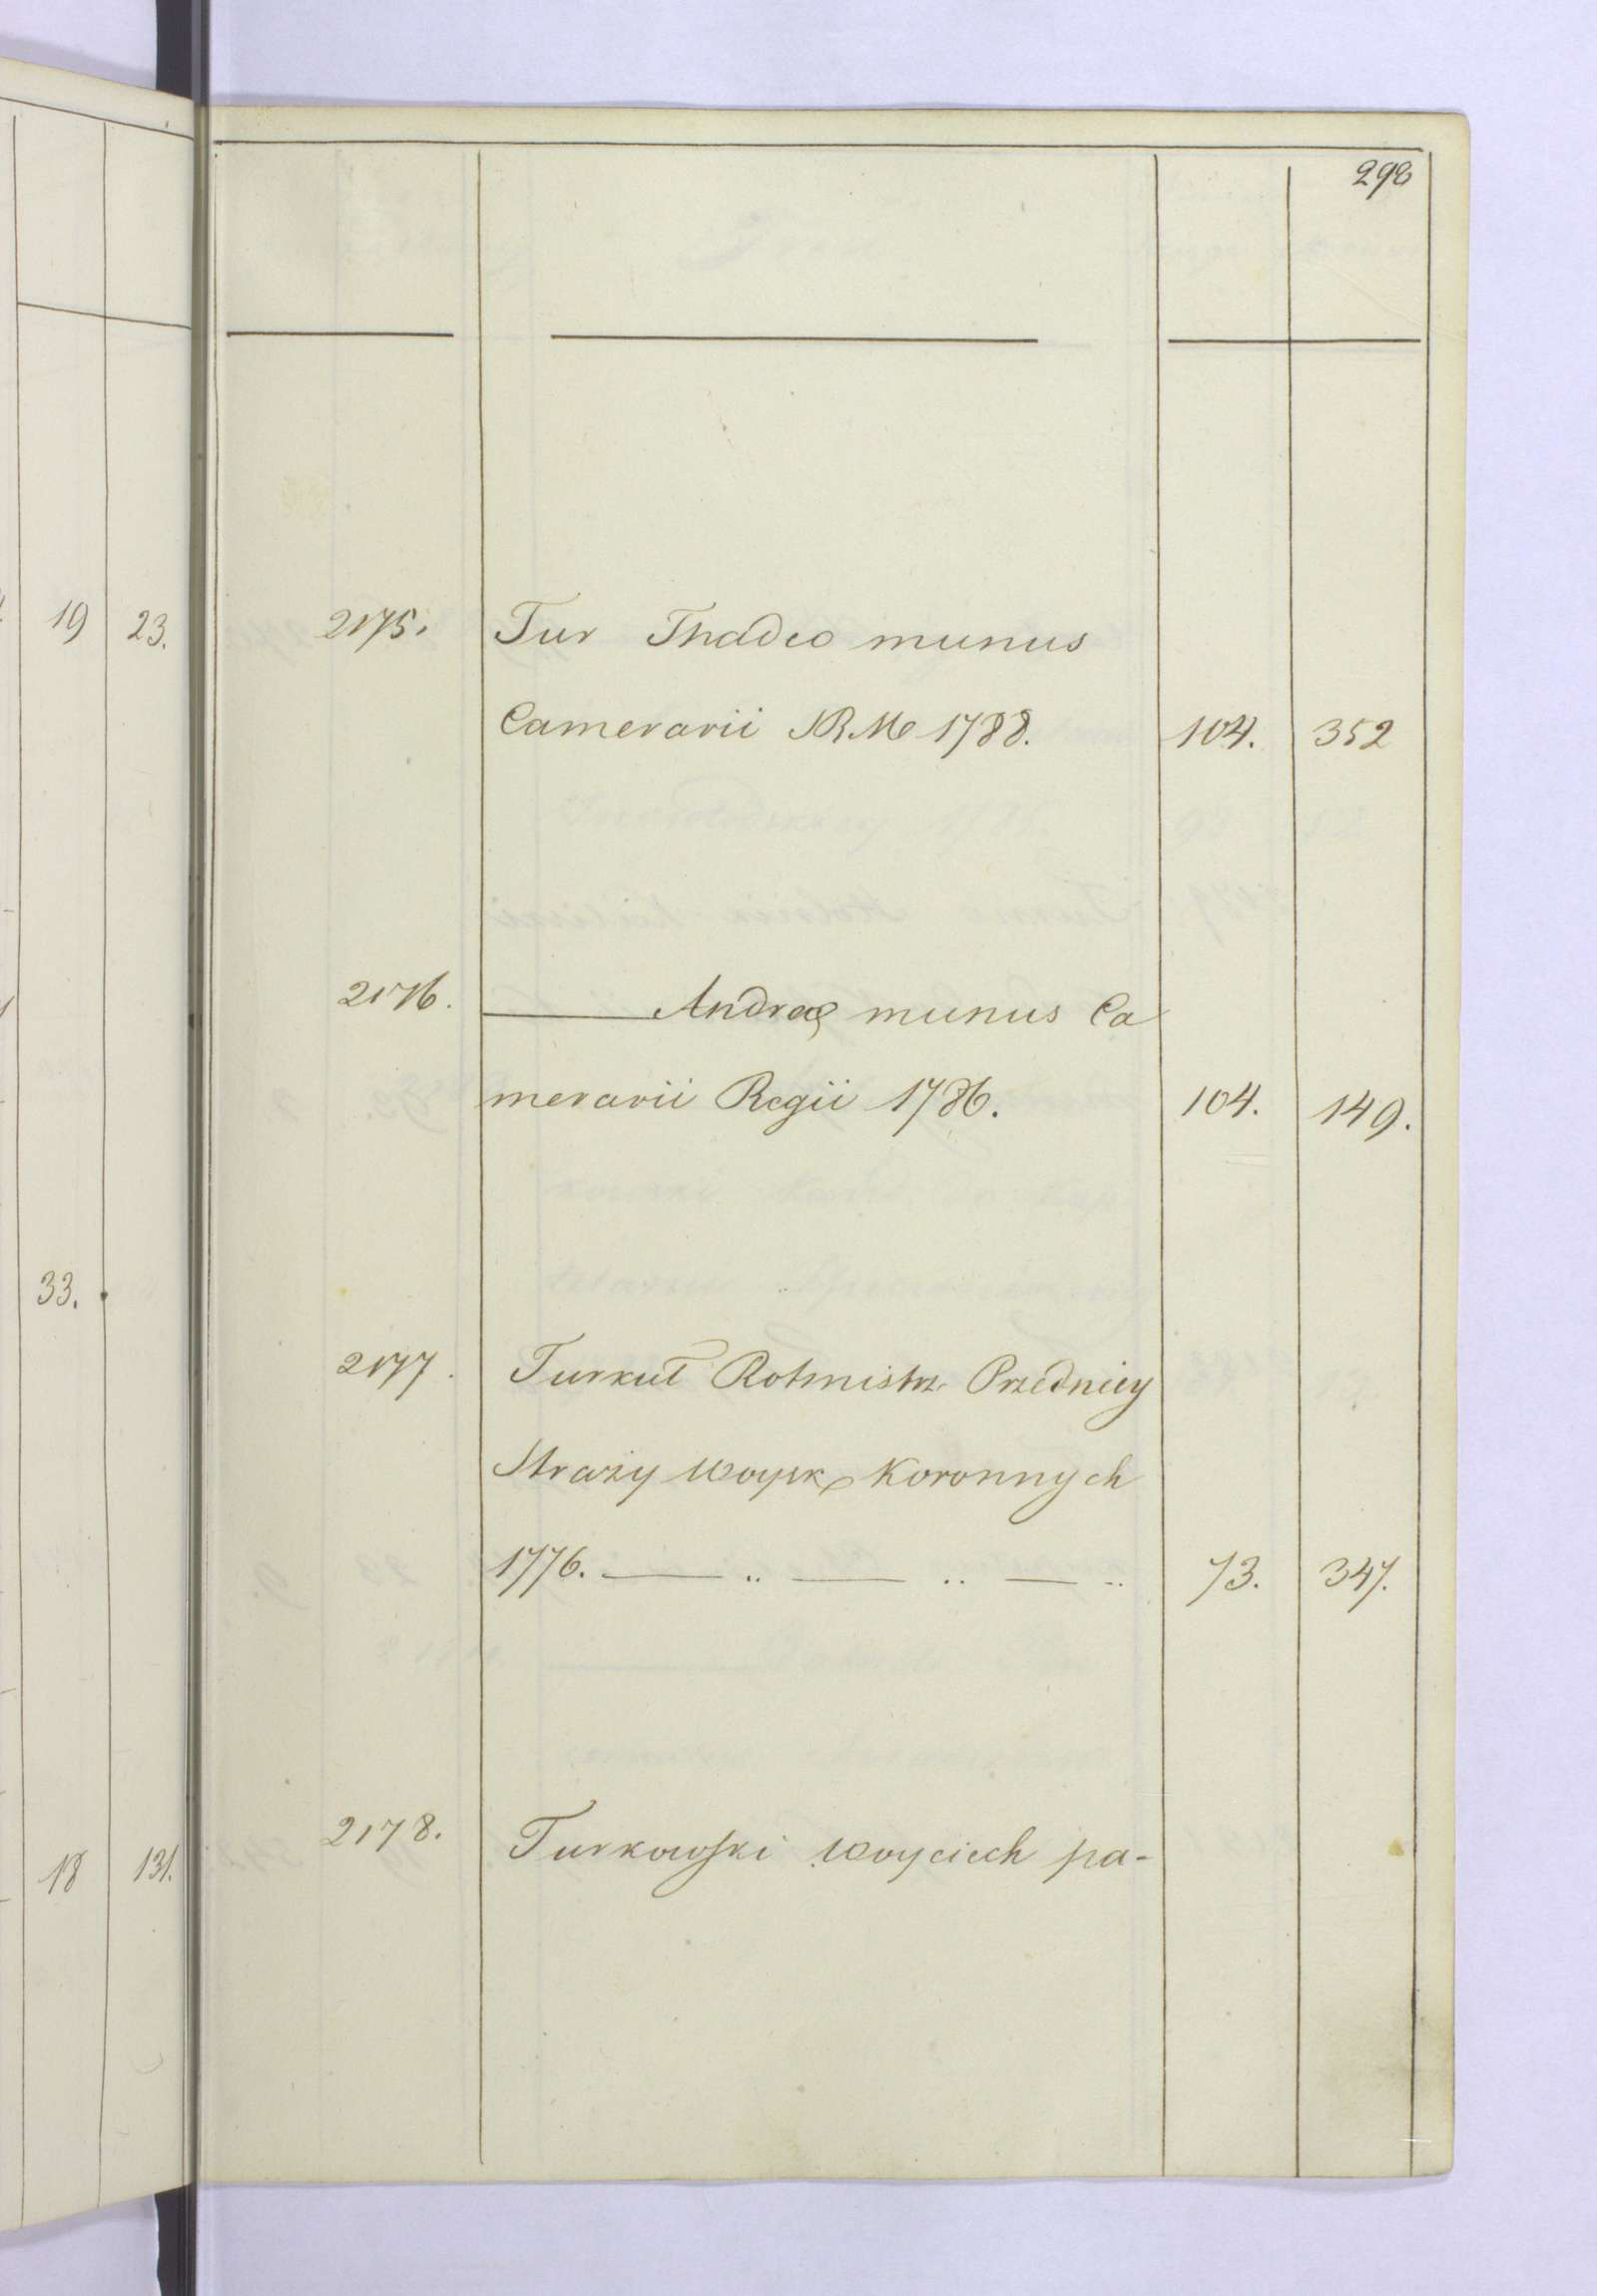 292
19 23.
2175. Tur Thadeo munus
Camerarii SRM 1788. 104. 352
2176. —— Andreæ munus Ca
merarii Regii 1786. 104. 149.
33.
2177. Turkuł Rotmistrz Przedniey
Straży Woysk Koronnych
1776. — .. — .. — .. 73. 347.
2178. Turkowski Woyciech pa-
18 131.